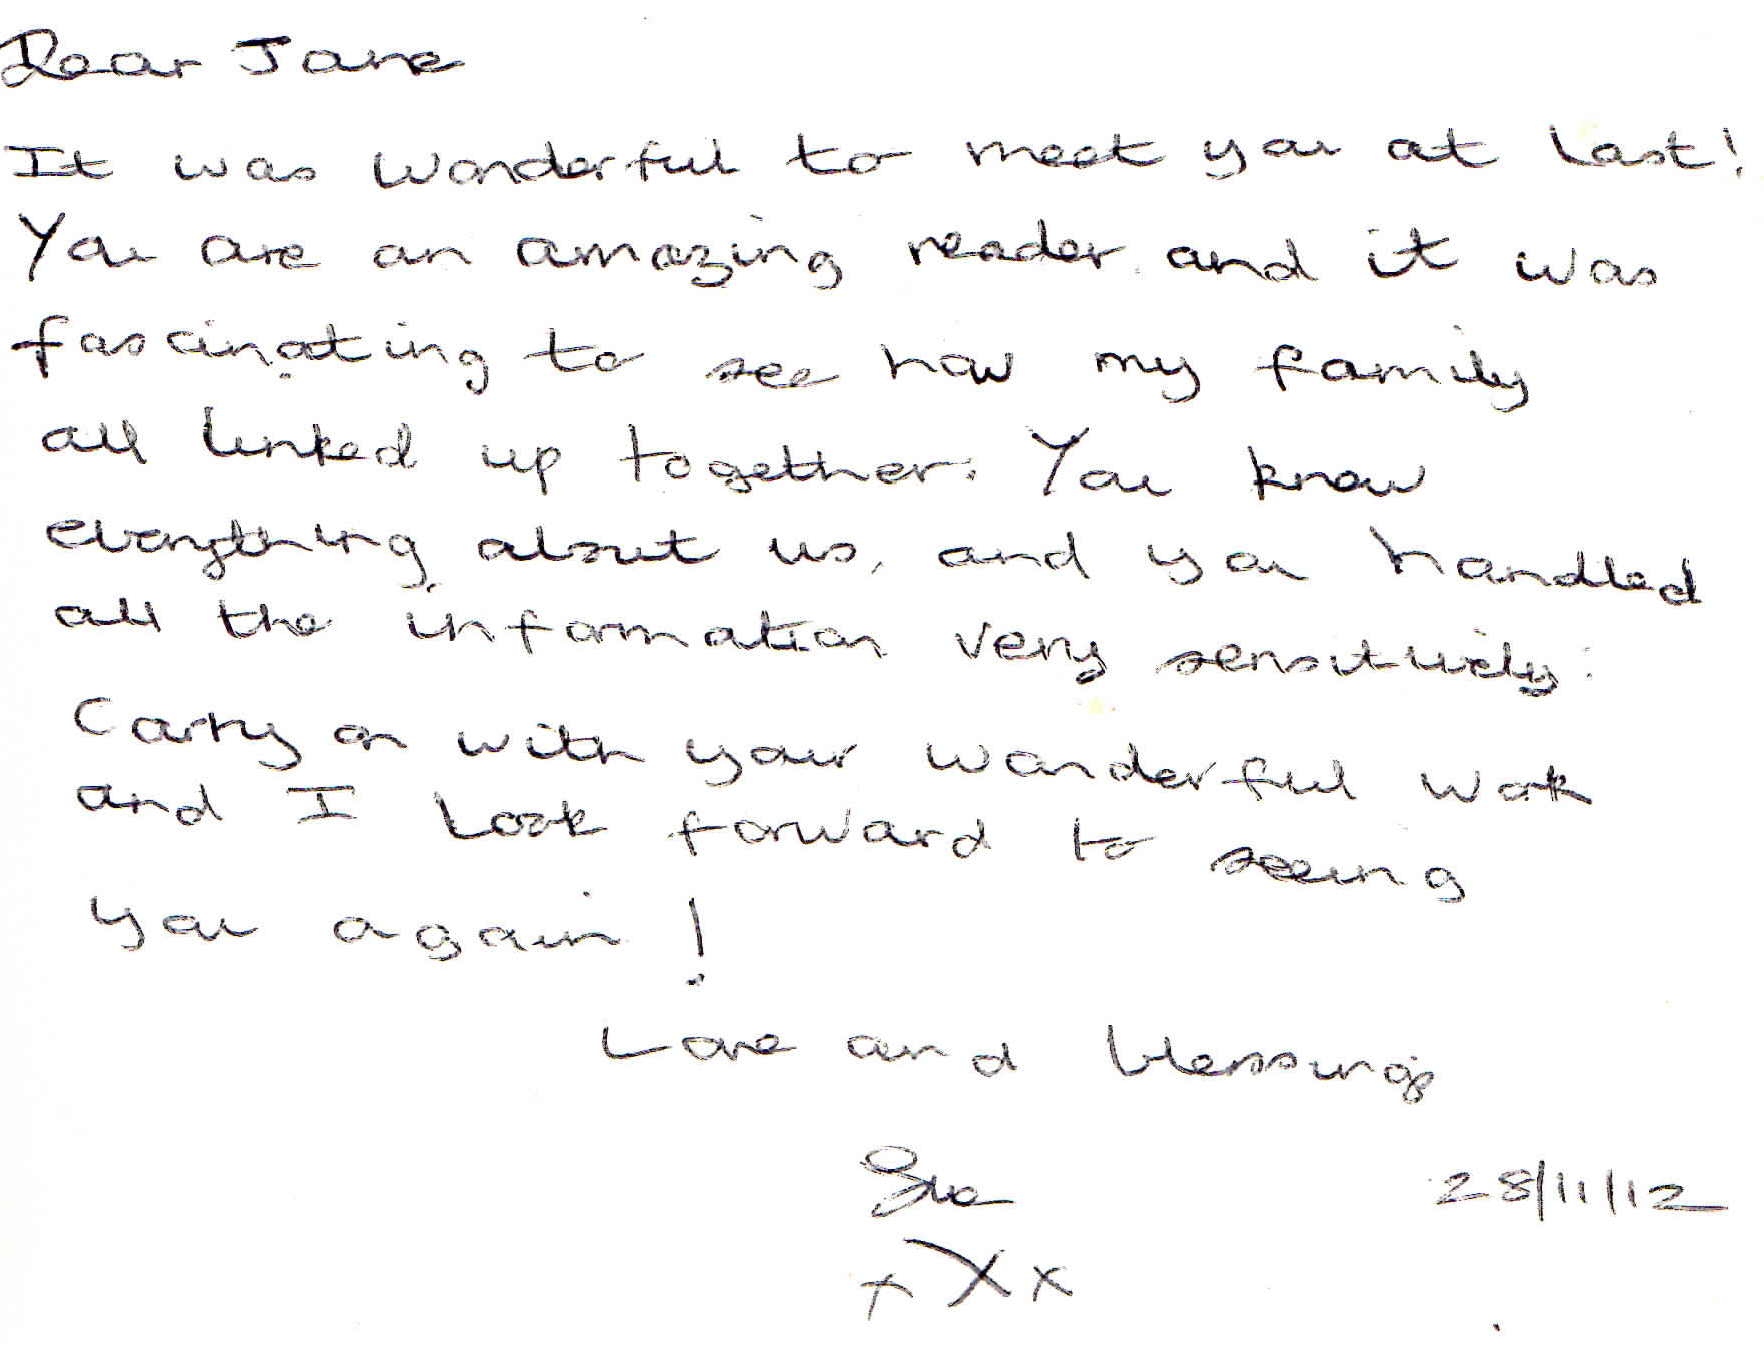 Dear Jane
It was wonderful to meet you at last!
You are an amazing reader and it was
fascinating to see how my family
all linked up together. You know
everything about us, and you handled
all the information very sensitively.
Carry on with your wonderful work
and I look forward to seeing
you again!
Love and blessings
Sue
28/11/12
x X x